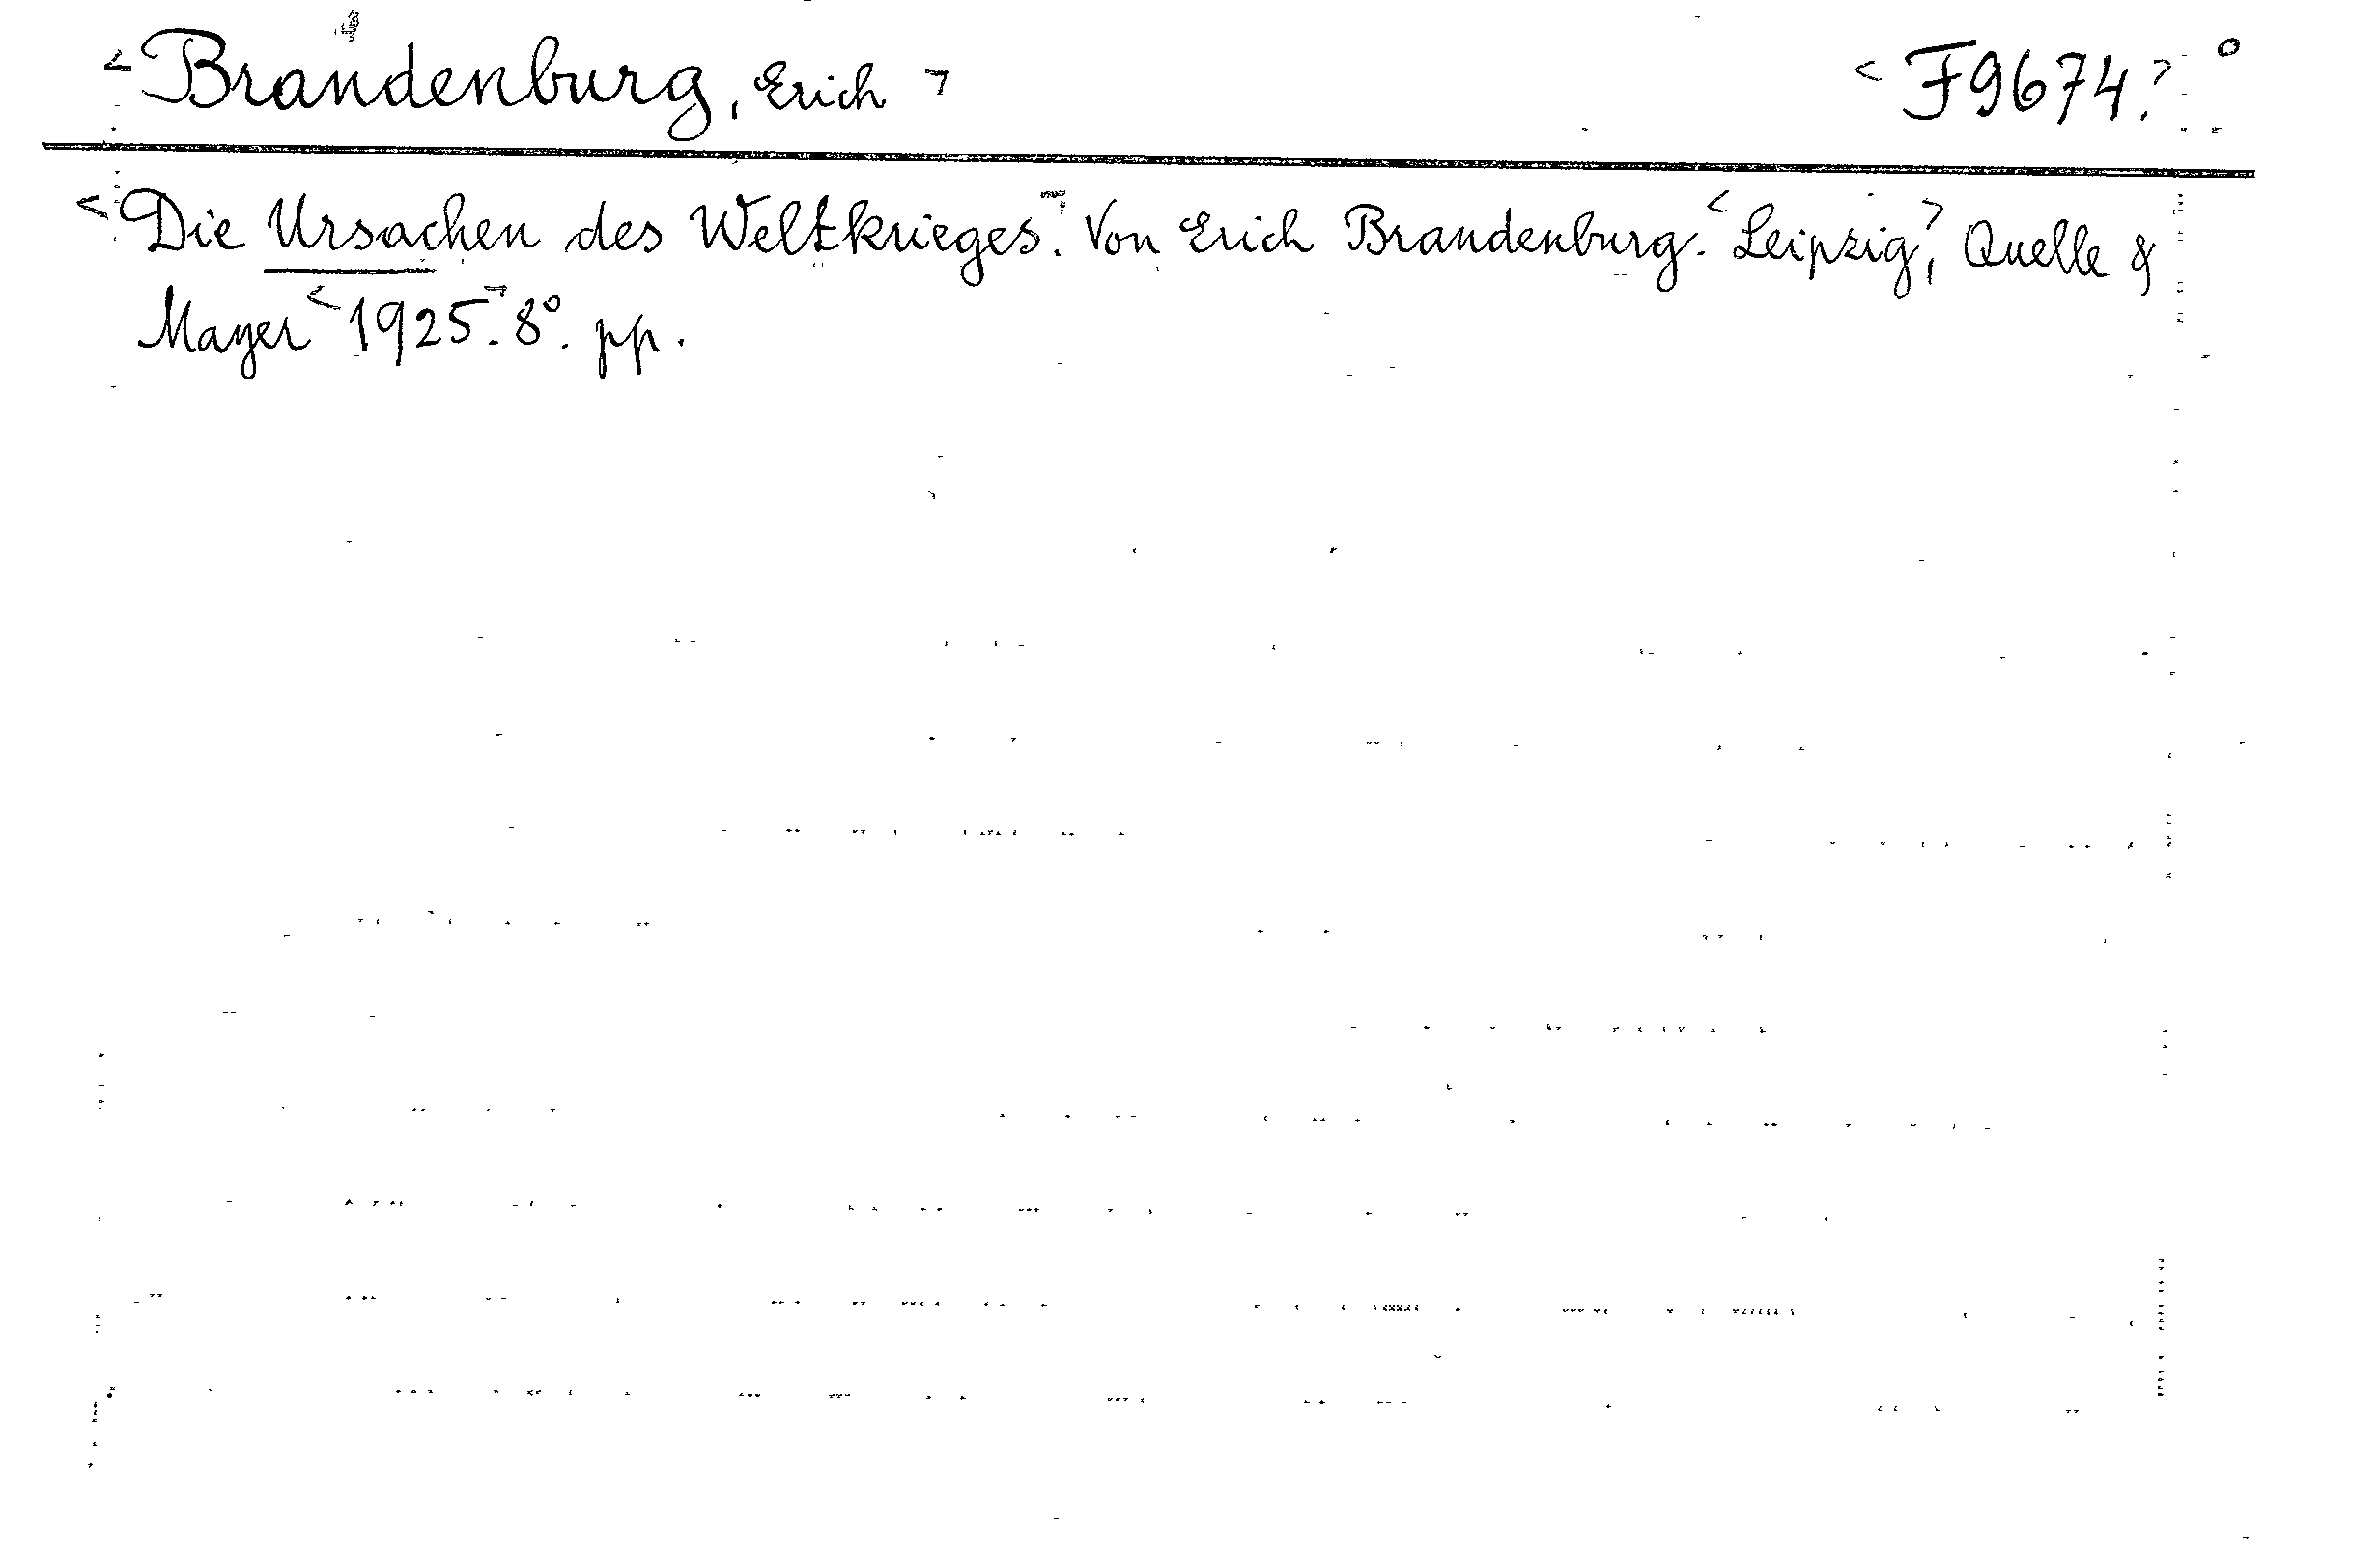 <Brandenburg, Erich> <F9674.>°
<Die Ursachen des Weltkrieges>. Von Erich Brandenburg. <Leipzig>, Quelle &
Mayer <1925>. 8°. pp.